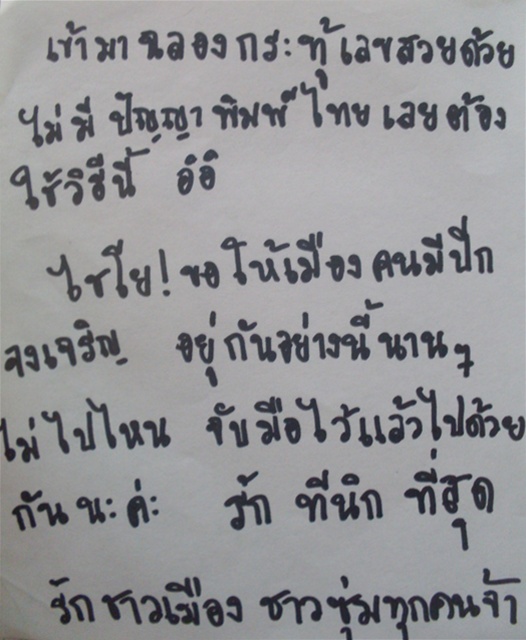 เข้ามาฉลองกระทู้เลขสวยด้วย
ไม่มีปัญญาพิมพ์ไทยเลยต้อง
ใช้วิธีนี้ อิอิ
ไชโย! ขอให้เมืองคนมีปีก
จงเจริญ อยู่กันอย่างนี้นานๆ
ไม่ไปไหน จับมือไว้แล้วไปด้วย
กันนะค่ะ รัก ทีนิก ที่สุด
รักชาวเมือง ชาวซุ่มทุกคนจ้า